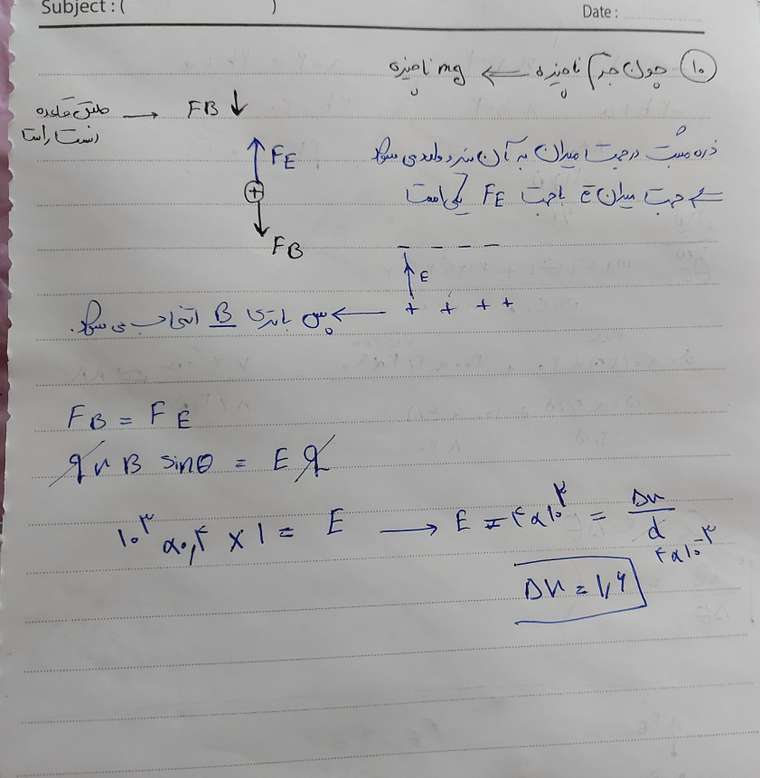 Subject : (                    )
Date :
۱۰ چون جرم ناچیزه ← mg ناچیزه
طبق قاعده دست راست → FB ↓
ذره مثبت در جهت میدان به آن نیرو وارد می شود
← جهت میدان E با جهت FE یکی است
FE
+
FB
− − − −
E
+ + + +
← پس باتری B انتخاب می شود.
FB = FE
qvB sinθ = Eq
۱۰^۳ × ۰,۴ × ۱ = E → E = ۴×۱۰^۲ = Δv/d
۴×۱۰^-۳
Δv = ۱,۶